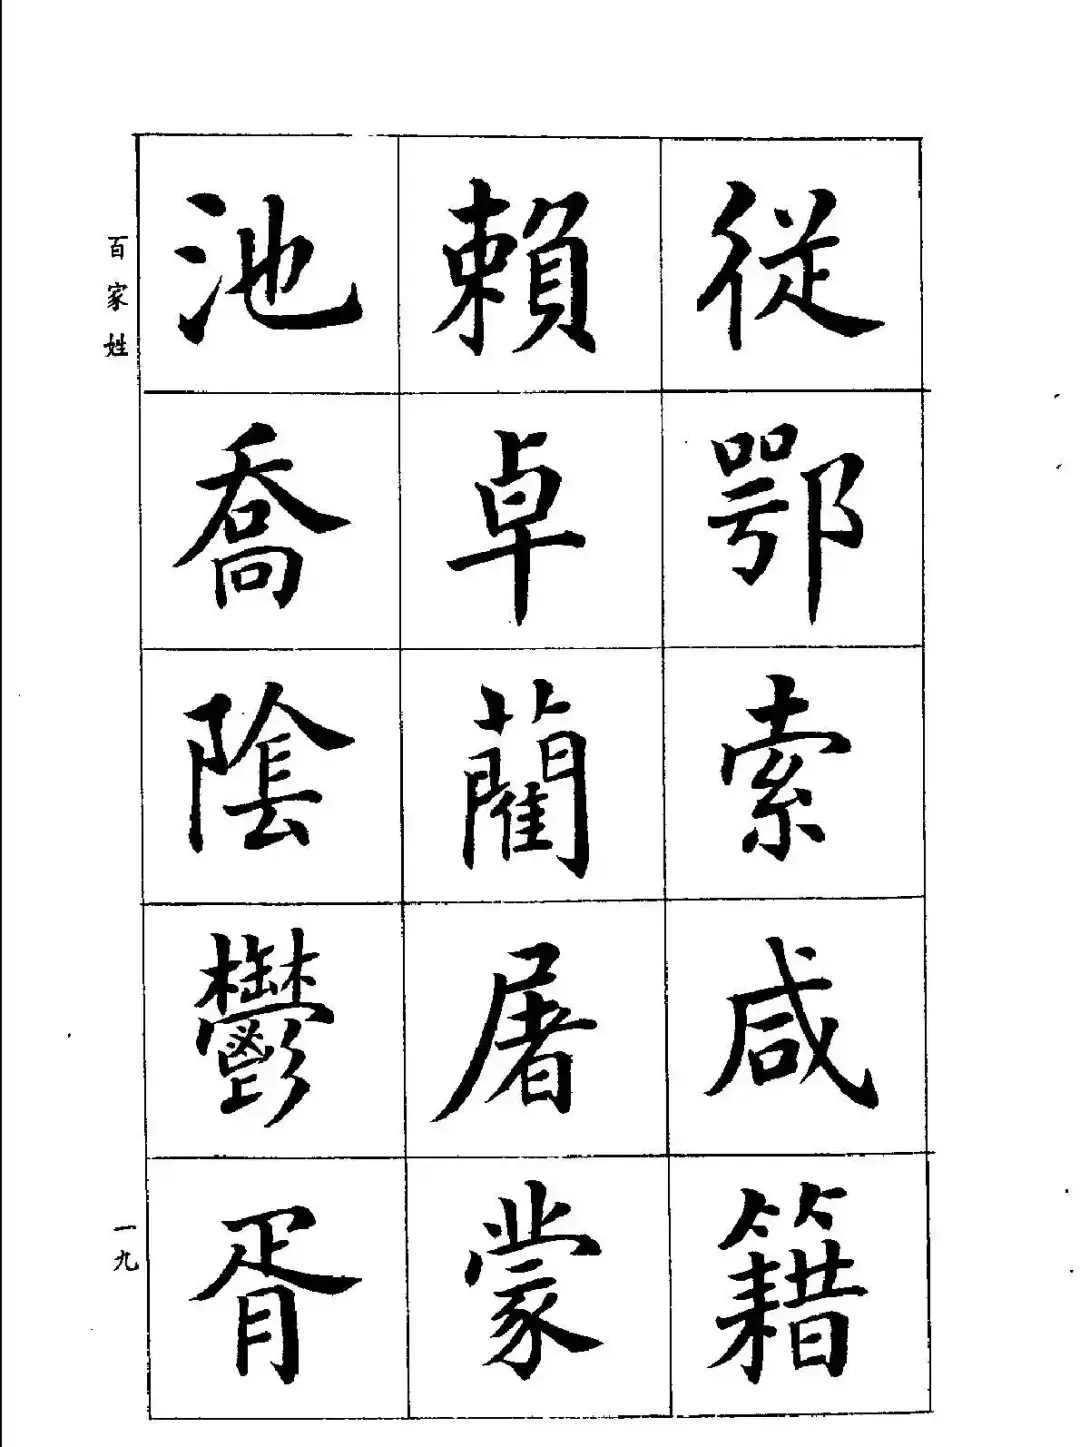 從鄂索咸籍
賴卓藺屠蒙
池喬陰鬱胥
百家姓
一九